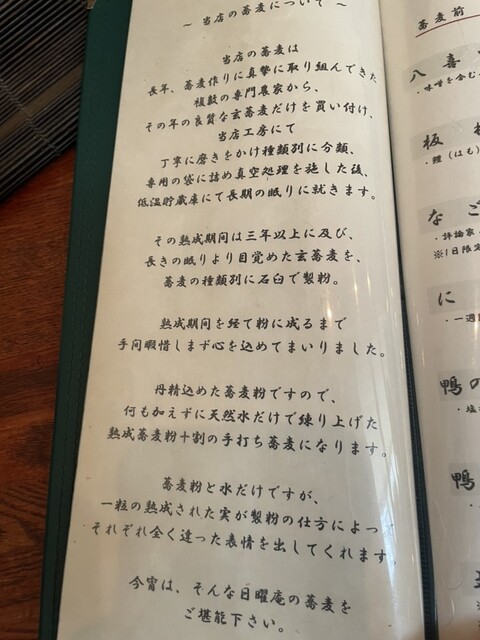 ～ 当店の蕎麦について ～
当店の蕎麦は
長年、蕎麦作りに真摯に取り組んできた
複数の専門農家から、
その年の良質な玄蕎麦だけを買い付け、
当店工房にて
丁寧に磨きをかけ種類別に分類、
専用の袋に詰め真空処理を施した後、
低温貯蔵庫にて長期の眠りに就きます。
その熟成期間は三年以上に及び、
長きの眠りより目覚めた玄蕎麦を、
蕎麦の種類別に石臼で製粉。
熟成期間を経て粉に成るまで
手間暇惜しまず心を込めてまいりました。
丹精込めた蕎麦粉ですので、
何も加えずに天然水だけで練り上げた
熟成蕎麦粉十割の手打ち蕎麦になります。
蕎麦粉と水だけですが、
一粒の熟成された実が製粉の仕方によっ
それぞれ全く違った表情を出してくれます。
今宵は、そんな日曜庵の蕎麦を
ご堪能下さい。
蕎麦前
八喜
・味噌を含む
板
・鱧（はも）
なご
・評論家
※1日限定
に
・一週
鴨の
・塩
鴨